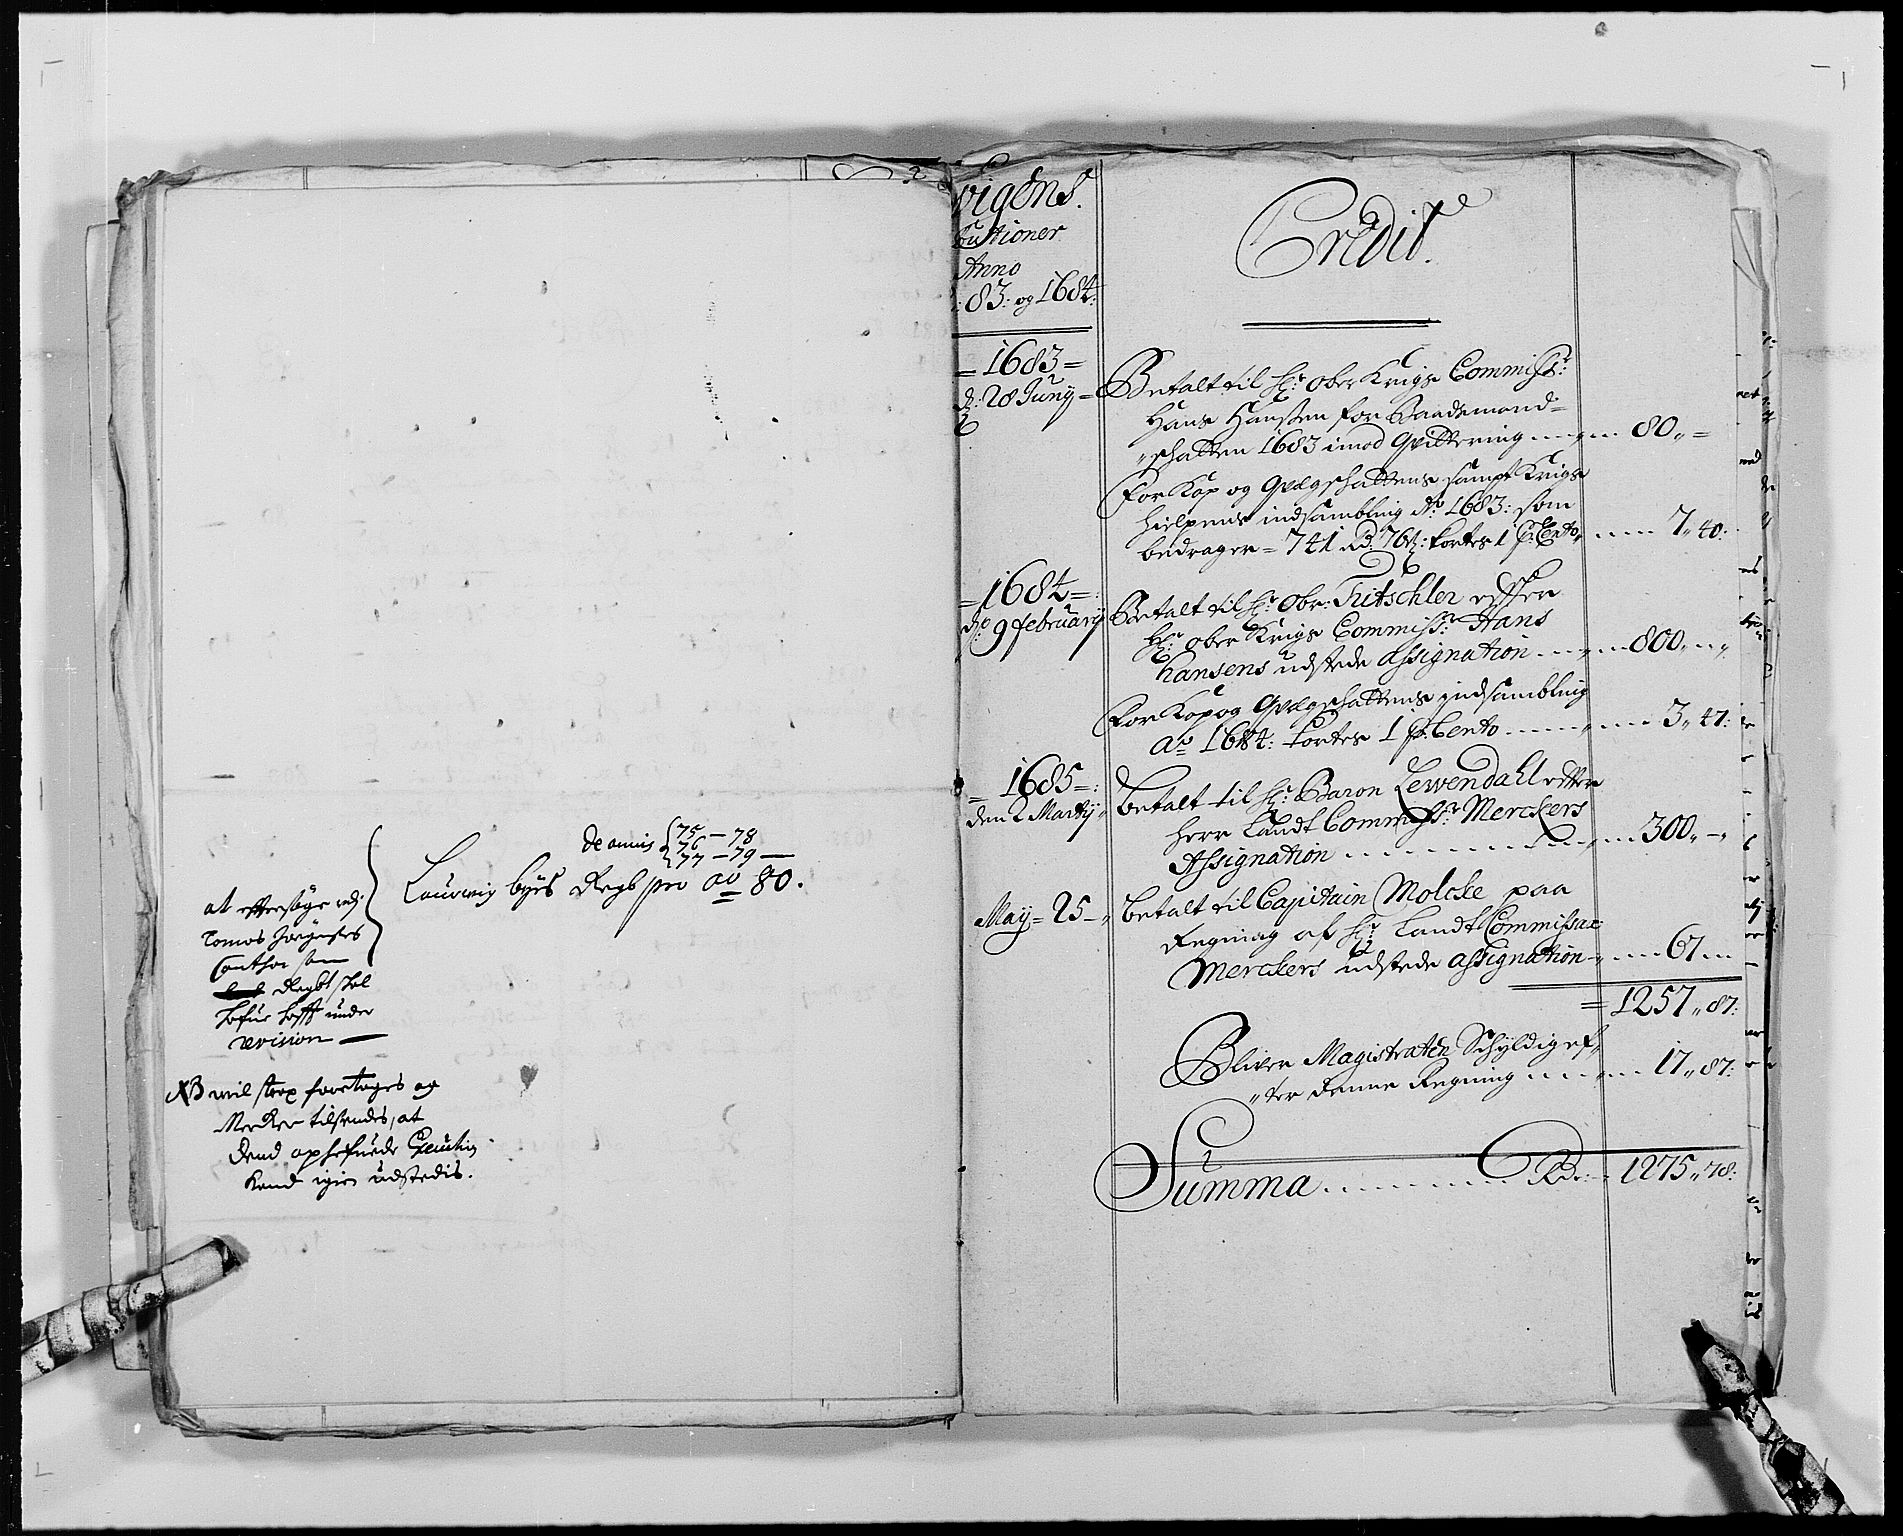 de annis 75 – 78
76
77 – 79 —
Laurvig byes Regb pro ao 80.
at effersøge udj
Tomas Jørgensens
Conthor som
Regbt skel
under
revision —
NB wil strax foretages og
Mercker tilsendes, at
dend ophefvede Execution
kand igien udstedis.
vigens.
butioner
Anno
83: og 1684:
Credit.
= 1683 =
d: 28 Juny =
Betalt til Hr: Ober Krigs Commiss:
Hans Hansen for Baadsmand=
schatten 1683 imod Qvittering 80 „ =
For Kop og Qvegschattens sampt Krigs
hielpens indsambling Ao 1683: som
bedrager = 741 Rd. 76 s: kortes 1 p: Cento 7 „ 40:
= 1684 =:
d: 9 february
Betalt til Hr: Obr: Tritschler effter
Hr: Ober Krigs Commiss: Hans
Hansens udstede Assignation 800 „
For Kop og Qvegschattens indsambling
Ao 1684: kortes 1 p: Cento 3 „ 47:
= 1685 =:
den 2 Marty
betalt til Hr: Baron Lewendahl effter
Herr Landt Commiss: Merckers
Assignation 300 „ –
May = 25 –
betalt til Capitain Molcke paa
Regning af Hr: Landt Commissar
Merckers udstede assignation 67
= 1257 „ 87:
Bliver Magistraten Schyldig ef=
„ter denne Regning 17 „ 87:
Summa Rd: 1275 „ 78: